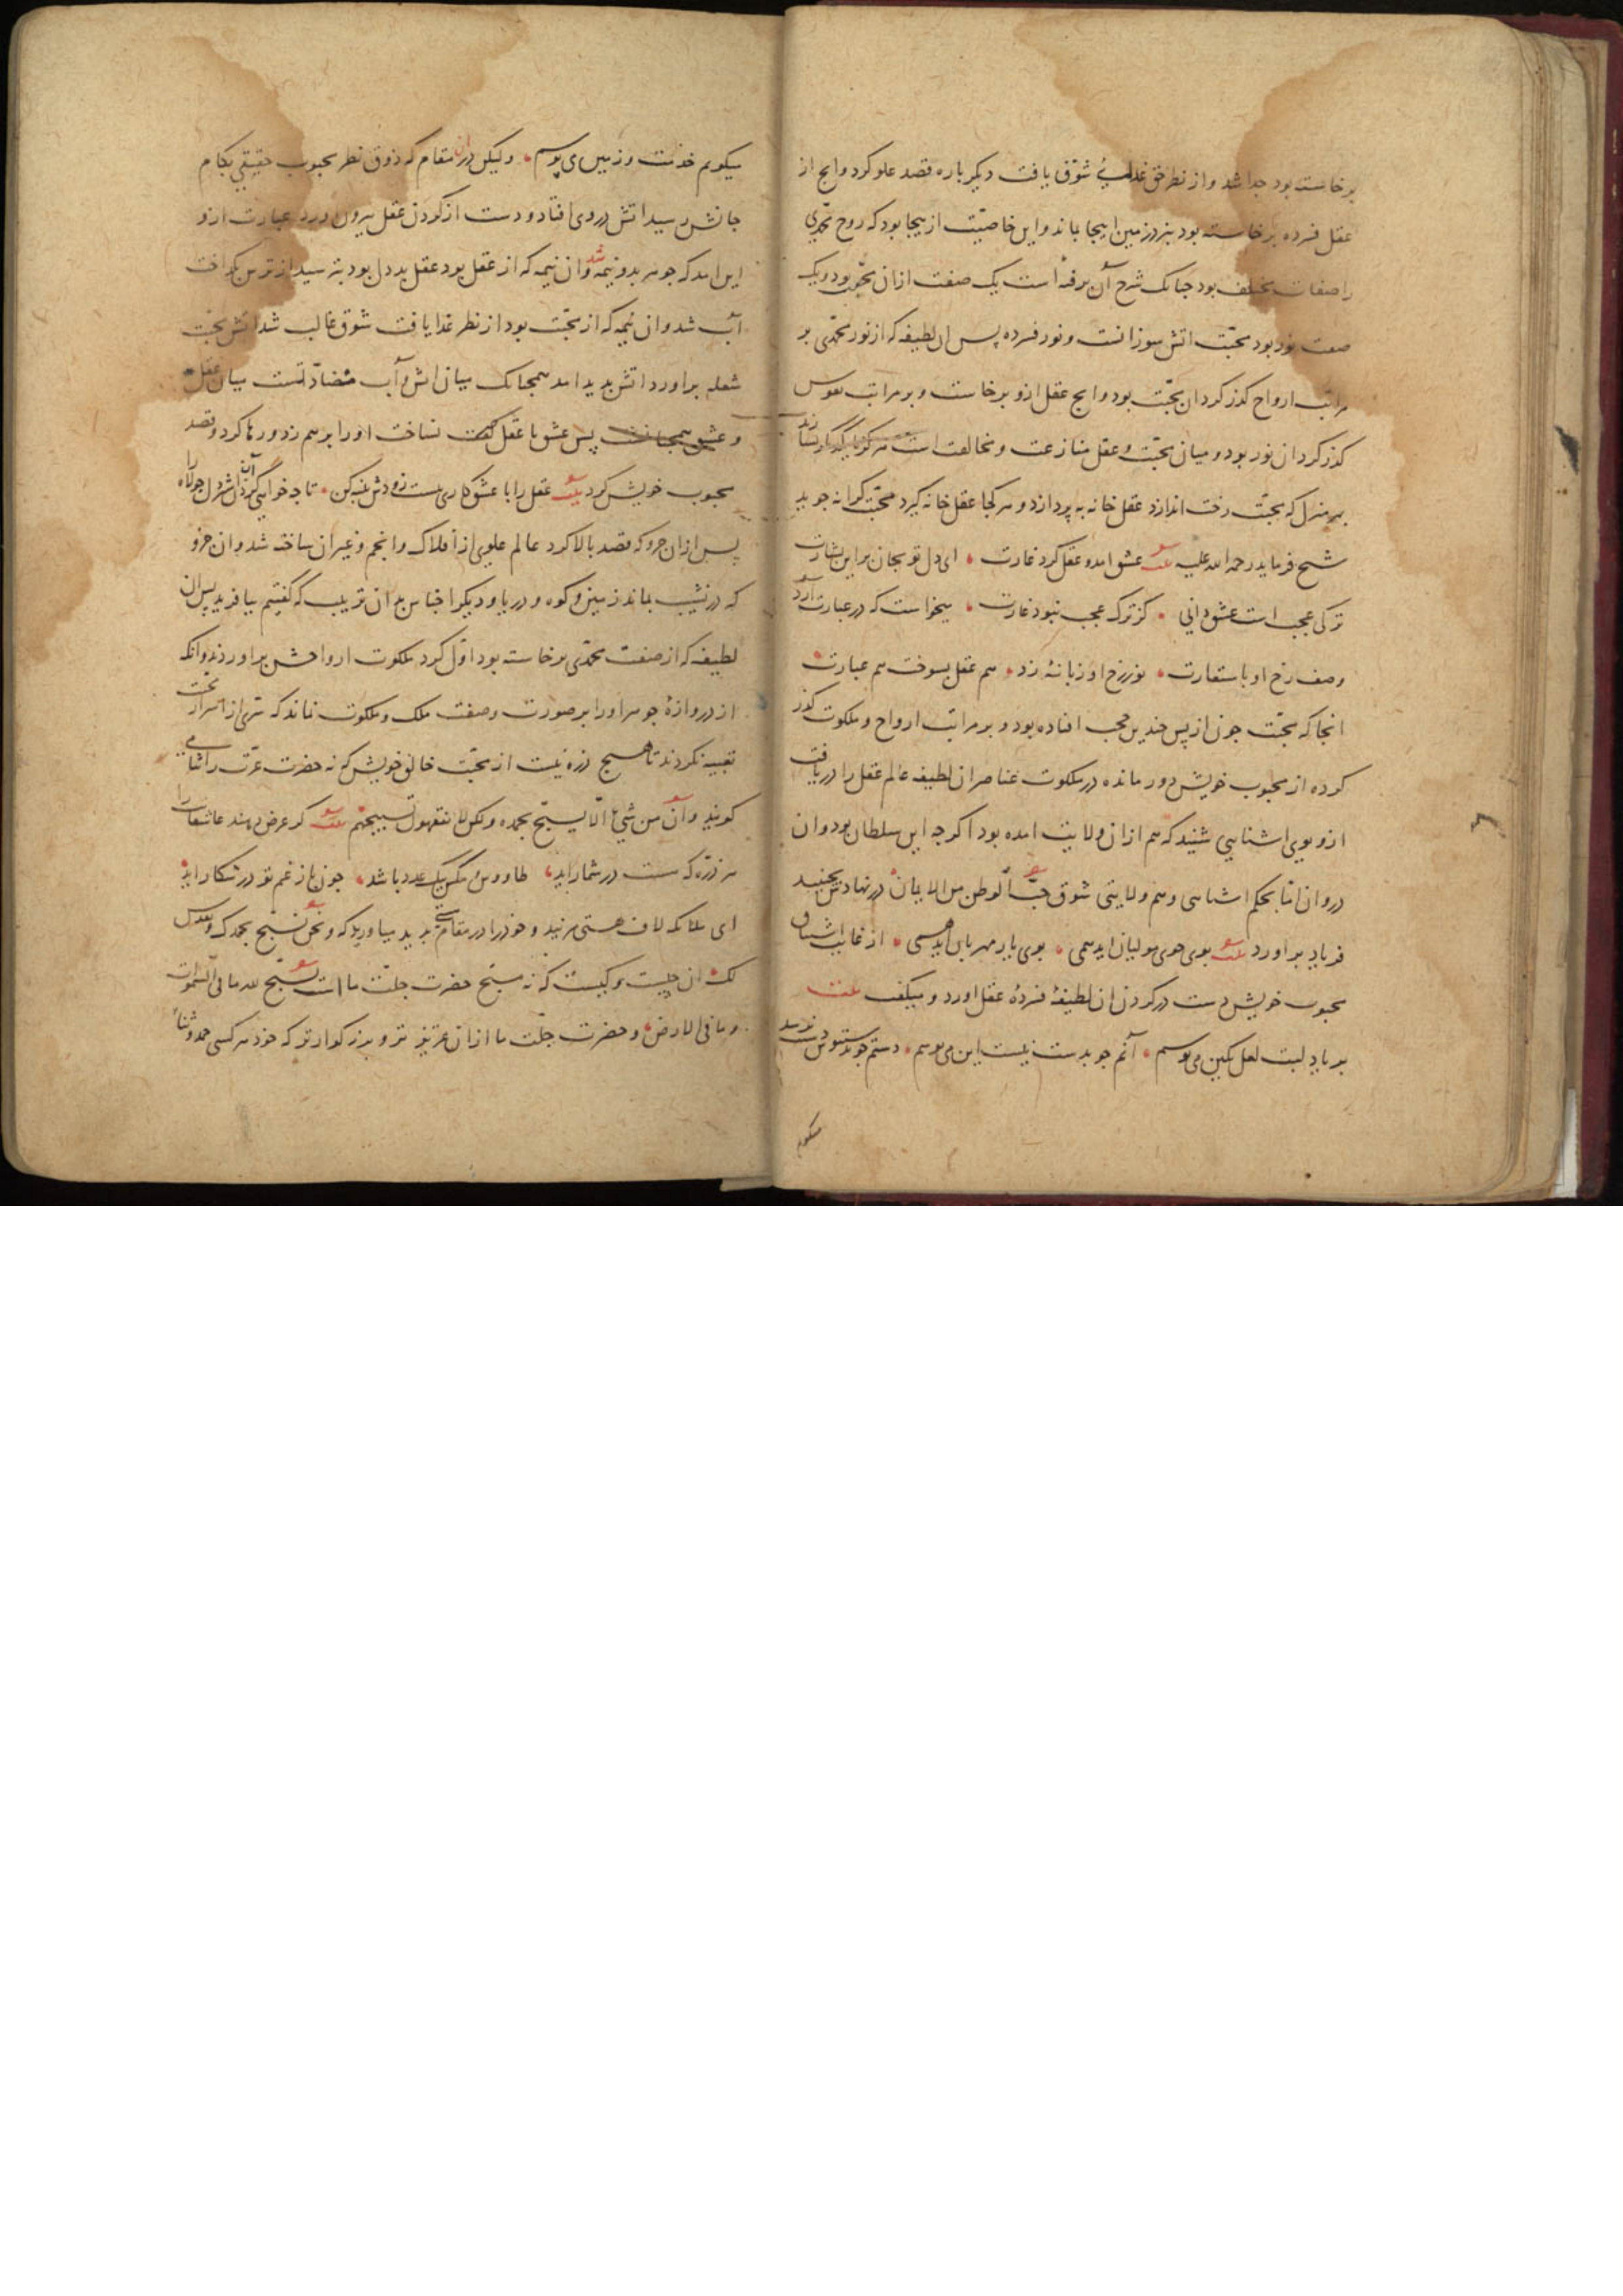 برخاسته بود جدا شد و از نظر حق غذای شوق یافت دیکر باره قصد علو کرد و انج از
عقل فسرده برخاسته بود بنزد زمین اینجا بماند و این خاصیّت از بیجا بود که روح محمّدی
را صفات مختلف بود جنانک شرح آن برفته است یک صفت ازان محبّت بود و یک
صفت نور بود محبّت اتش سوزانست و نور فسرده پس ان لطیفه که از نور محمّدی بر
مراتب ارواح کذر کرد ان محبّت بود و انج عقل ازو برخاست و بر مراتب نفوس
کذر کرد ان نور بود و میان محبّت و عقل منازعت و مخالفت است
بهر منزل که محبّت رخت اندازد عقل خانه به پردازد و هر کجا عقل خانه کیرد محبّت کرانه جوید
شیخ فرماید رحمه الله علیه بیت عشق امد و عقل کرد غارت • ای دل تو بجان بر این بشارت
ترکی عجب است عشق دانی • کز ترک عجب نبود غارت • میخواست که در عبارت آرد
وصف رخ او باستعارت • نور رخ او زبانهٔ زد • هم عقل بسوخت هم عبارت
انجا که محبّت جون از پس جندین حجب افتاده بود و بر مراتب ارواح و ملکوت کذر
کرده از محبوب خویش دور مانده در ملکوت عناصر ان لطیفه عالم عقل را دریافت
ازو بوی اشنایی شنید که هم ازان ولایت امده بود اکر جه این سلطان بود و ان
دروان امّا بحکم اشنایی و هم ولایتی شوق حبّ الوطن من الایمان در نهادش بجنبید
فریاد براورد بیت بوی جوی مولیان اید همی • بوی یار مهربان اید همی • از غایت اشتیاق
محبوب خویش دست در کردن ان لطیفهٔ فسردهٔ عقل اورد و میکفت بیت
بر یاد لبت لعل نکین می بوسم • آنم جو بدست نیست این می بوسم • دستم جو بدستبوس نرسد
میکویم
میکویم خذمت و زمین می بوسم • ولیکن دران مقام که ذوق نظر محبوب حقیقی بکام
جانش رسید اتش در وی افتاد و دست از کردن عقل بیرون اورد عبارت ازو
این امد که جوهر بدو نیمه شد و ان نیمه که از عقل بود عقل بددل بود بترسید از ترس بکداخت
آب شد و ان نیمه که از محبّت بود از نظر غذا یافت شوق غالب شد اتش محبّت
شعله براورد اتش پدید امد همجنانک میان اتش و آب مضادّتست میان عقل
و عشق همجنانست پس عشق با عقل نساخت او را برهم زد و رها کرد و قصد
محبوب خویش کرد بیت عقل را با عشق کاری نیست زودش پنبه کن • تا جه خواهی کرد آن اشتردل جولاه را
پس ازان جزو که قصد بالا کرد عالم علوی از افلاک و انجم و غیر ان ساخته شد و ان جزو
که در نشیب بماند زمین و کوه و دریا و دیکر اجناس بدان ترتیب که کفتیم بیافرید پس ان
لطیفه که از صفت محمّدی برخاسته بود اوّل کرد ملکوت ارواحش براوردند و انکه
از دروازهٔ جوهر او را بر صورت و صفت ملک و ملکوت نماند که سّری از اسرار محبّت
تعبیه نکردند تا هیج ذرّه نیست از محبّت خالق خویش که نه حضرت عزّت را ثنایی
کویند و ان من شیء الّا یسبّح بحمده ولکن لا تفقهون تسبیحهم بیت کر عرض دهند عاشقانت را
هر ذرّه که هست در شمار اید • طاووس و مکس یک عدد باشد • جون باز غم تو در شکار اید
ای ملائکه لاف هستی مزنید و خود را در مقامی پدید میاورید که و نحن نسبّح بحمدک و نقدّس
لک • ان جیست و کیست که نه مسبّح حضرت جلّت ما است یسبّح لله ما فی السّموات
و ما فی الارض • و حضرت جلّت ما ازان عزیز تر و بزرکوارتر که خود هر کسی حمد و ثنا